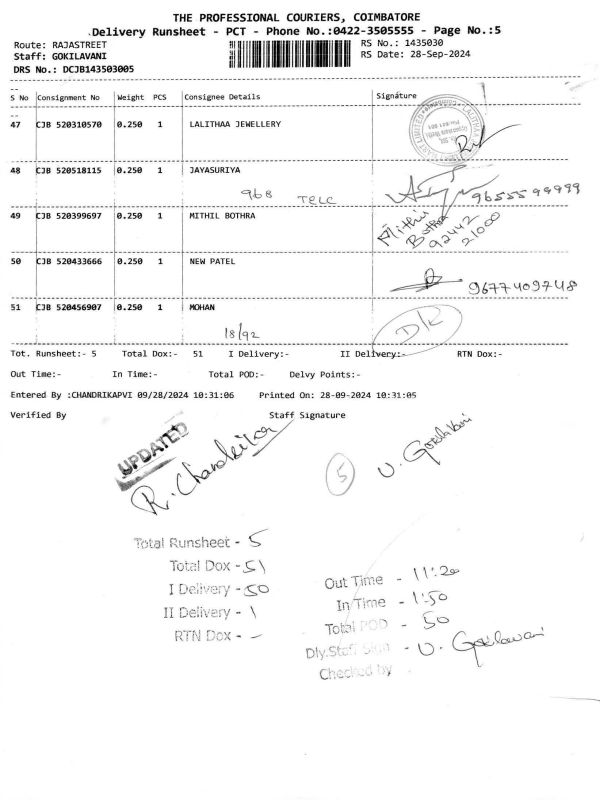 THE PROFESSIONAL COURIERS, COIMBATORE
Delivery Runsheet - PCT - Phone No.:0422-3505555 - Page No.:5
Route: RAJASTREET RS No.: 1435030
Staff: GOKILAVANI RS Date: 28-Sep-2024
DRS No.: DCJB143503005
S No Consignment No Weight PCS Consignee Details Signature
47 CJB 520310570 0.250 1 LALITHAA JEWELLERY
48 CJB 520518115 0.250 1 JAYASURIYA
968 TELC 9655599999
49 CJB 520399697 0.250 1 MITHIL BOTHRA
Mithil
Bothra
92442
21000
50 CJB 520433666 0.250 1 NEW PATEL
9677409748
51 CJB 520456907 0.250 1 MOHAN
18/92 D/K
Tot. Runsheet:- 5 Total Dox:- 51 I Delivery:- II Delivery:- RTN Dox:-
Out Time:- In Time:- Total POD:- Delvy Points:-
Entered By :CHANDRIKAPVI 09/28/2024 10:31:06 Printed On: 28-09-2024 10:31:05
Verified By Staff Signature
UPDATED
R. Chandrika
5
U. Gokilavani
Total Runsheet - 5
Total Dox - 51
I Delivery - 50
II Delivery - 1
RTN Dox - -
Out Time - 11:20
In Time - 1:50
Total POD - 50
Dly.Staff Sign - U. Gokilavani
Checked by